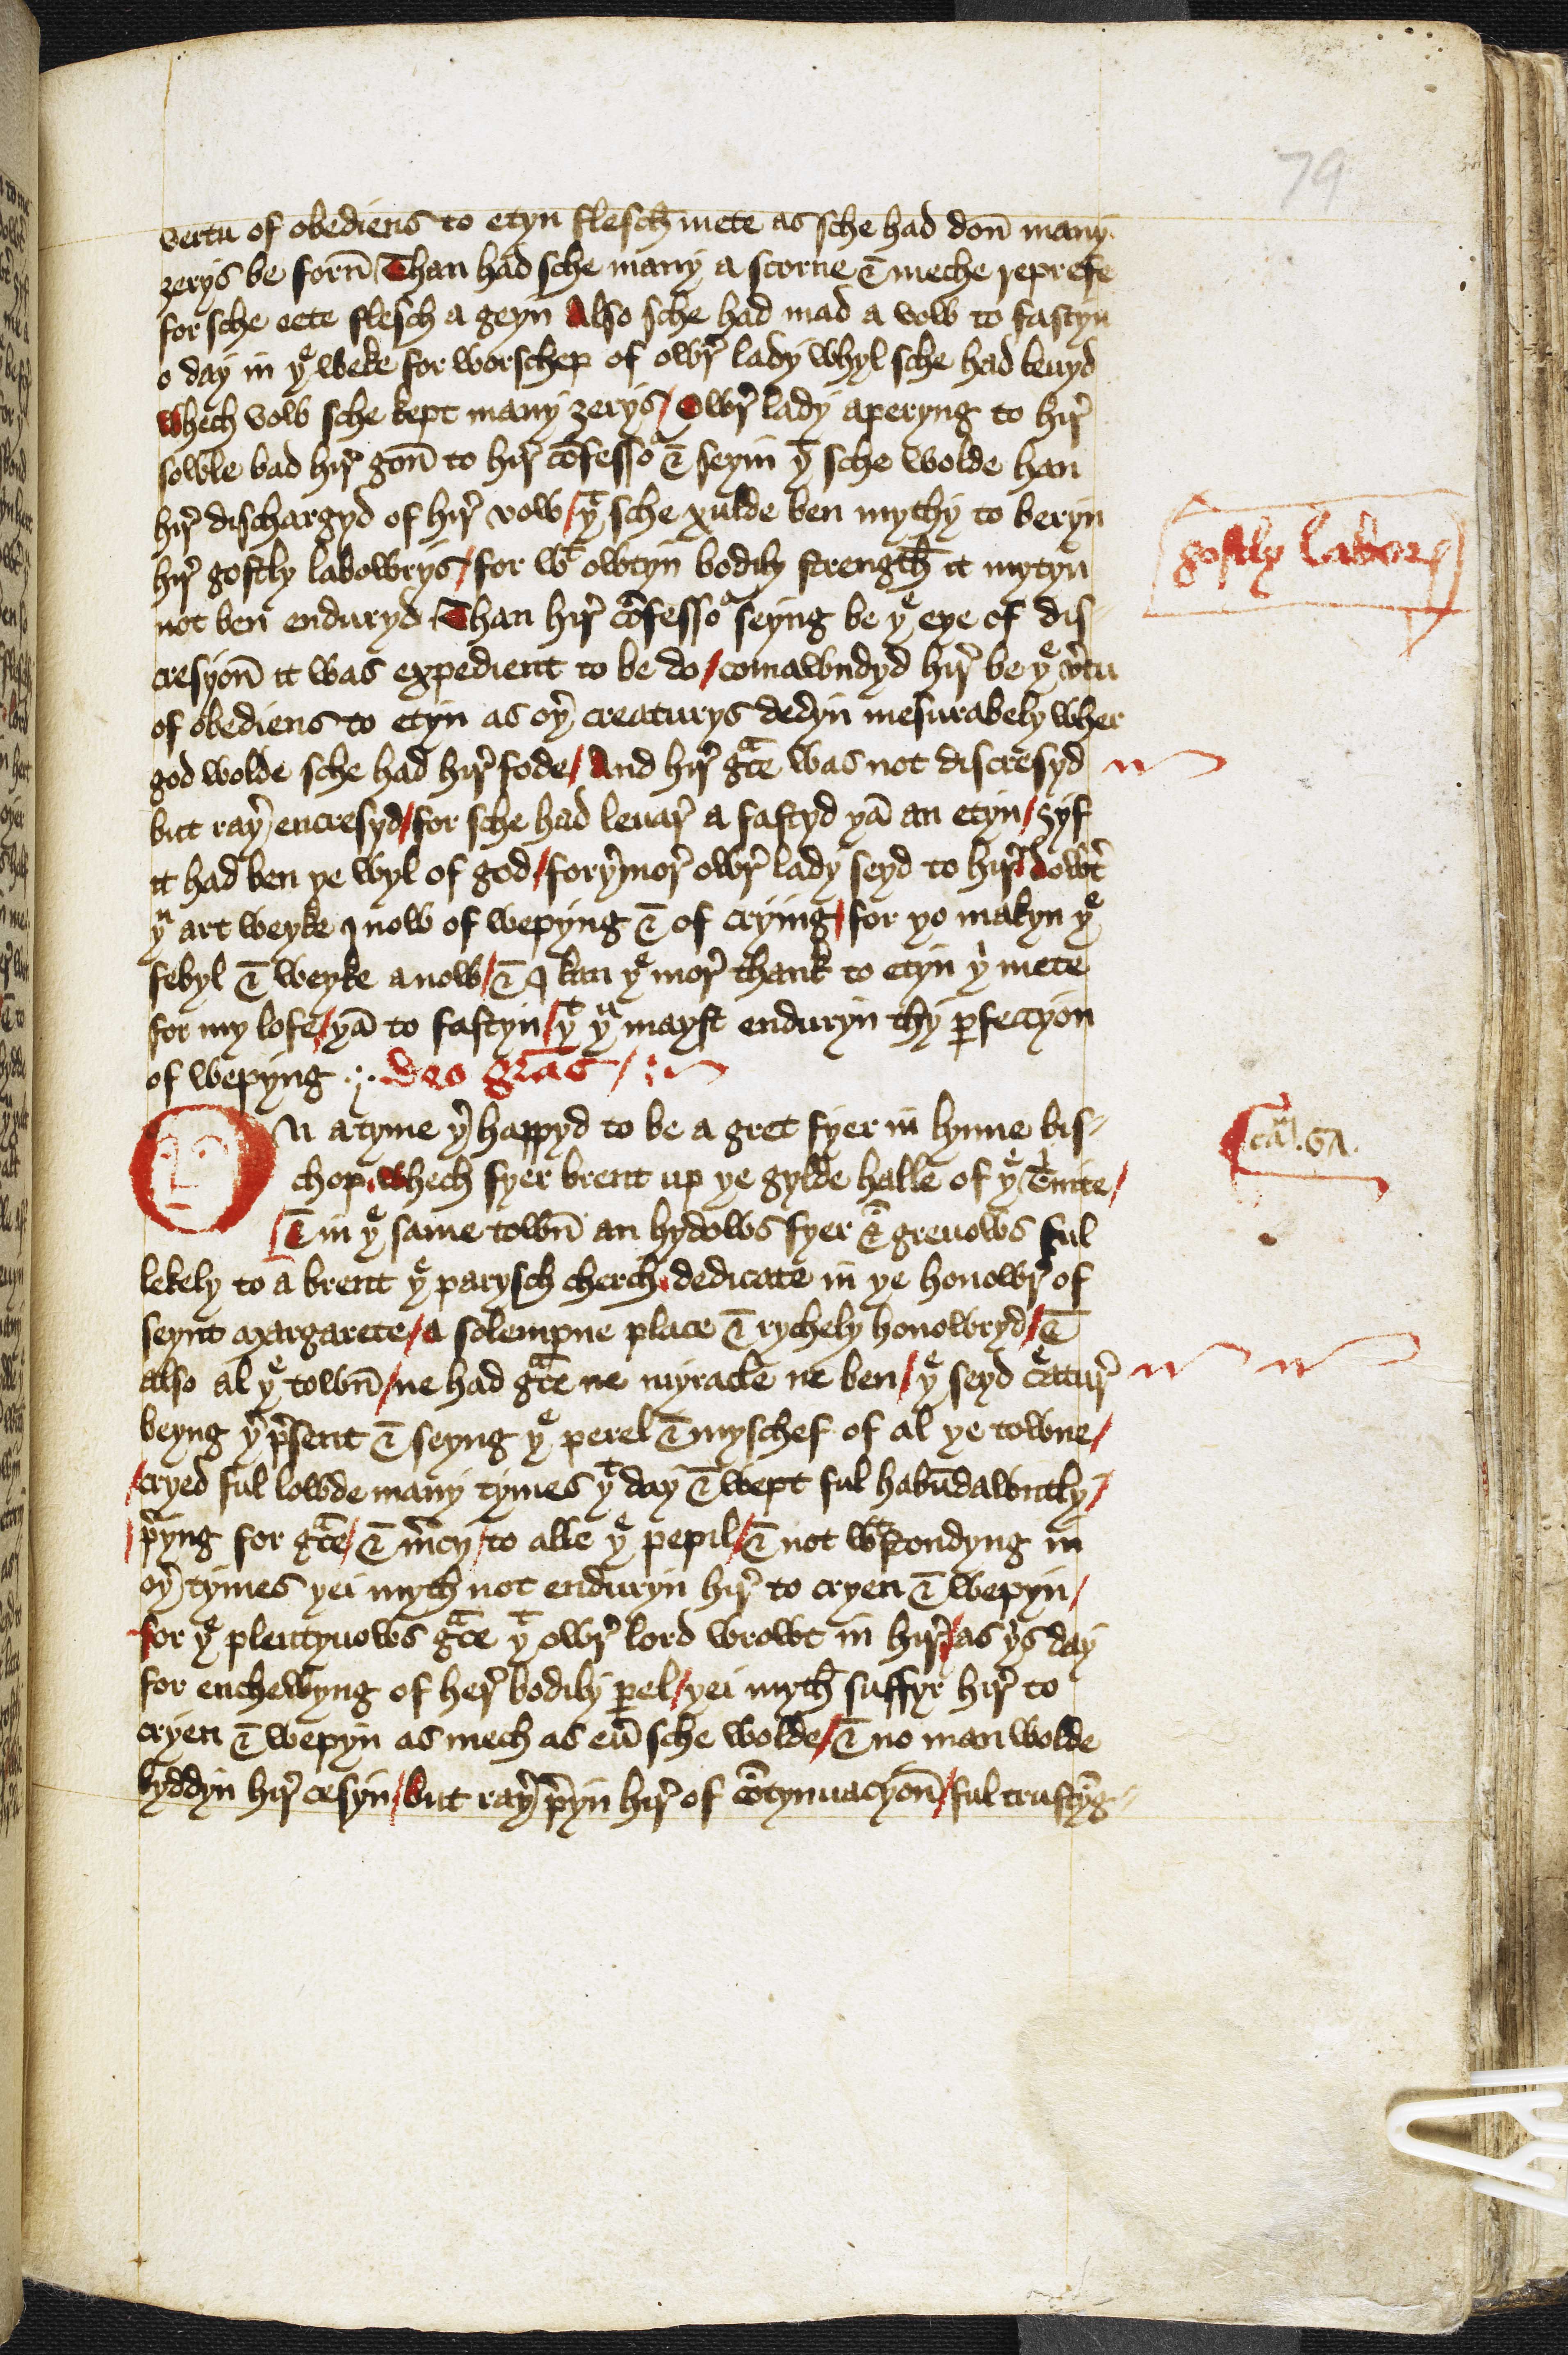 79
vertu of obediens to etyn flesch mete as sche had don̄ many
ȝerys be forn̄ Than had sche many a scorne & meche reprefe
for sche eete flesch a geyn Also sche had mad a vow to fastyn
o day in yᵉ weke for worschep of owr̛ lady whyl sche had leuyd
whech vow sche kept many ȝerys / Owr̛ lady aperyng to hir̛
sowle bad hir̛ gon̄ to hir̛ cōfessoʳ & seyin yᵗ sche wolde han
hir̛ dischargyd of hir̛ vow / yᵗ sche xulde ben mythy to beryn
hir̛ gostly labowrys / for wᵗ owtyn bodily strength it mytyn
gostly labowr
not ben enduryd Than hir̛ cōfessoʳ seyng be yᵉ eye of dis-
cresyon̄ it was expedient to be do / comawndyd hir̛ be yᵉ v̛tu
of obediens to etyn as oy̛ creaturys dedyn mesurabely wher
god wolde sche had hir̛ fode / And hir̛ gᵃce was not discresyd
but ray̛ encresyd / for sche had leuar̛ a fastyd yā an etyn / ȝyf
it had ben ye wyl of god / fory̛mor̛ owr̛ lady seyd to hir̛ dowt̛
yᵘ art weyke I now of wepyng & of crying / for yo makyn yᵉ
febyl & weyke a now / & I kan yᵉ mor̛ thank to etyn yⁱ mete
for my lofe / yā to fastyn / yᵗ yᵘ mayst enduryn thy ꝑfeccyon
of wepyng .;. deo gr̄as / :
On a tyme y̛ happyd to be a gret fyer in lynne bis-
cām. 67.
chop whech fyer brent up ye gylde halle of yᵉ Tⁱnite /
& in yᵉ same town̄ an hydows fyer & greuows ful
lekely to a brent yᵉ parysch cherch dedicate in ye honowr̛ of
seynt Margarete / a solempne place & rychely honowryd / &
also al yᵉ town̄ / ne had gᵃce ne myracle ne ben / yᵉ seyd cᵉatur̛
beyng y̛ p̛sent & seyng yᵉ perel & myschef of al ye towne /
/ cryed ful lowde many tymes yᵗ day & wept ful habūdawntly /
p̛yng for gᵃce / & m̛cy / to alle yᵉ pepil / & not wᵗstondyng in
oy̛ tymes yei myth not enduryn hir̛ to cryen & wepyn /
for yᵉ plentyuows gᵃce yᵗ owr̛ lord wrowt in hir̛ / as yⁱs day
for enchewyng of her̛ bodily ꝑel / yei myth suffyr hir̛ to
cryen & wepyn as mech as eư sche wolde / & no man wolde
byddyn hir̛ cesyn / but ray̛ p̛yn hir̛ of cōtynuacyon̄ / ful trustyⁿg